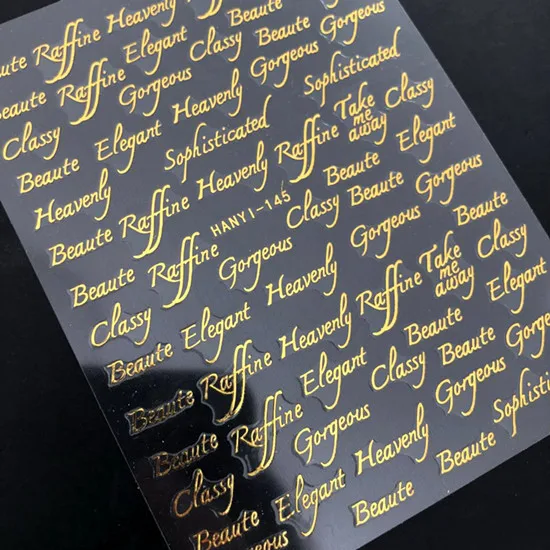 Beaute Raffine Heavenly
Beaute Raffine Elegant Classy Beaute Gorgeous
Classy Gorgeous
Beaute Elegant Heavenly Gorgeous Gorgeous
Heavenly Sophisticated Sophisticated
Beaute Raffine Heavenly Raffine Take me away Classy
HANYI-145 Beaute Elegant
Beaute Raffine Classy Beaute Gorgeous
Classy Gorgeous Gorgeous Beaute
Beaute Elegant Heavenly
Beaute Raffine Heavenly Raffine Take me away Classy
Beaute Raffine Elegant Beaute Elegant
Classy Gorgeous Classy Beaute Gorgeous
Beaute Elegant Heavenly Gorgeous
Gorgeous Beaute Beaute